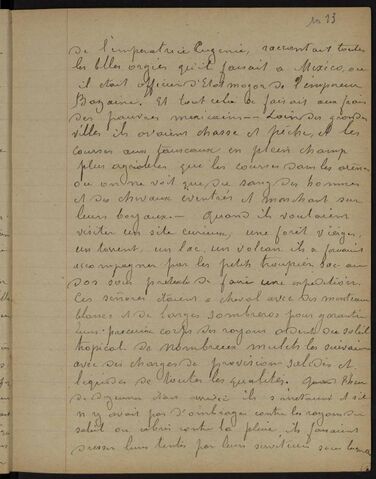 13
de l'imperatrice Eugenie, racontait toutes
les belles orgies qu'il faisait a Mexico, ou
il etait officier d'Etat major de l'empereur
Bazaine. Et tout cela se faisait aux frais
des pauvres mexicains - Loin des grandes
villes ils avaient chasse et pêche, et les
courses aux taureaux en plein champ
plus agréables que les courses dans les arènes
ou on ne voit que du sang des hommes
et des chevaux eventrés et marchant sur
leurs boyaux. - Quand ils voulaient
visiter un site curieux, une forêt vierge,
un torrent, un lac, un volcan ils se faisaient
accompagner par les petits troupiers sac au
dos sous pretexte de faire une expedition.
Ces señores etaient a cheval avec des manteaux
blancs et de larges sombreros pour garantir
leurs precieux corps des rayons ardents du soleil
tropical de nombreux mulets les suivaient
avec des charges de provisions solides et
liquides de toutes les qualités. quand l'heure
de dejeuner etait arrivée ils s'arretaient et s'il
n'y avait pas d'ombrage contre les rayons du
soleil ou abris contre la pluie, ils faisaient
dresser leurs tentes par leurs serviteurs sous